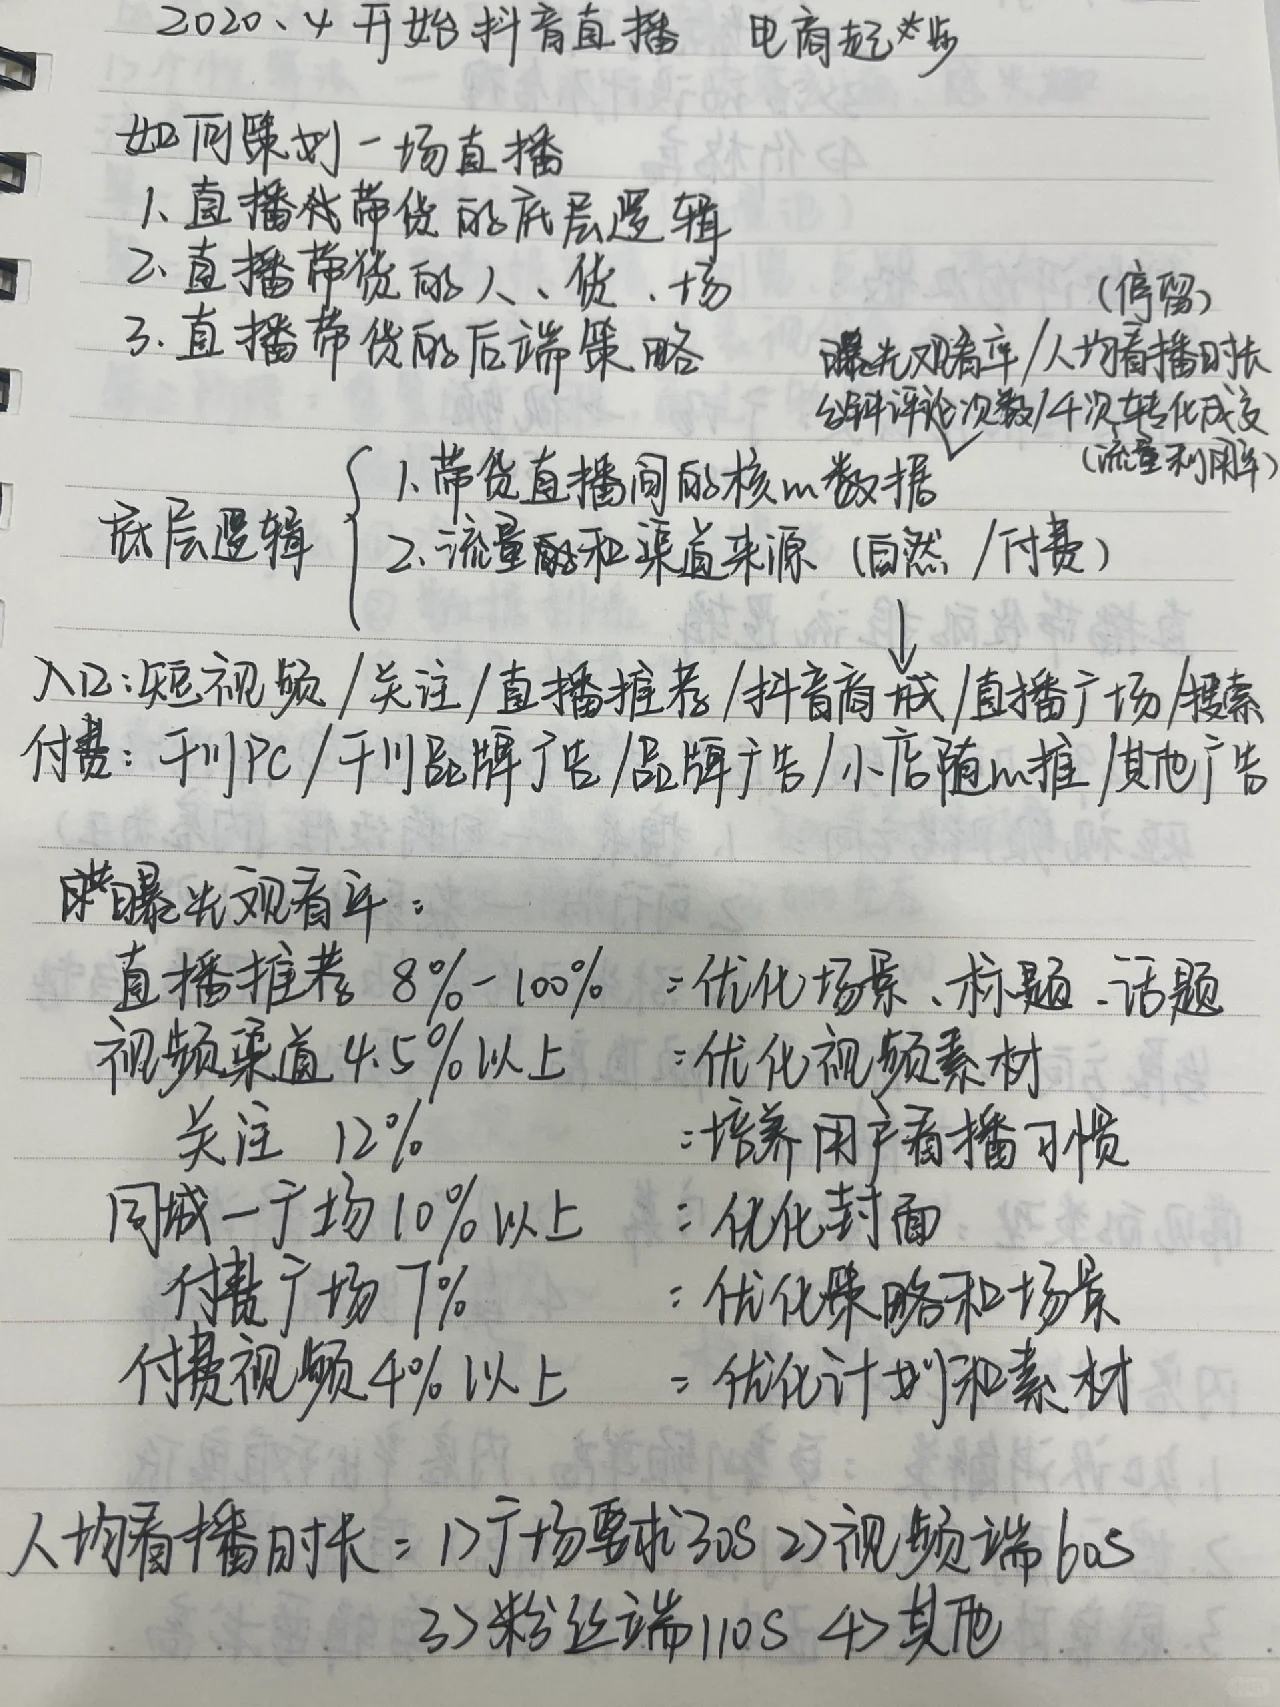 2020.4开始抖音直播 电商起步
如何策划一场直播
1、直播带货的底层逻辑
2、直播带货的人、货、场
3、直播带货的后端策略
(停留)
曝光观看率/人均看播时长
分钟评论次数/千次转化成交
(流量利用率)
底层逻辑
1、带货直播间的核心数据
2、流量和渠道来源(自然/付费)
入口:短视频/关注/直播推荐/抖音商城/直播广场/搜索
付费:千川PC/千川品牌广告/品牌广告/小店随心推/其他广告
曝光观看率:
直播推荐 8%-100% =优化场景、标题、话题
视频渠道4.5%以上 =优化视频素材
关注 12% =培养用户看播习惯
同城一广场10%以上 =优化封面
付费广场 7% =优化策略和场景
付费视频4%以上 =优化计划和素材
人均看播时长=1>广场要求30S 2>视频端60S
3>粉丝端110S 4>其他